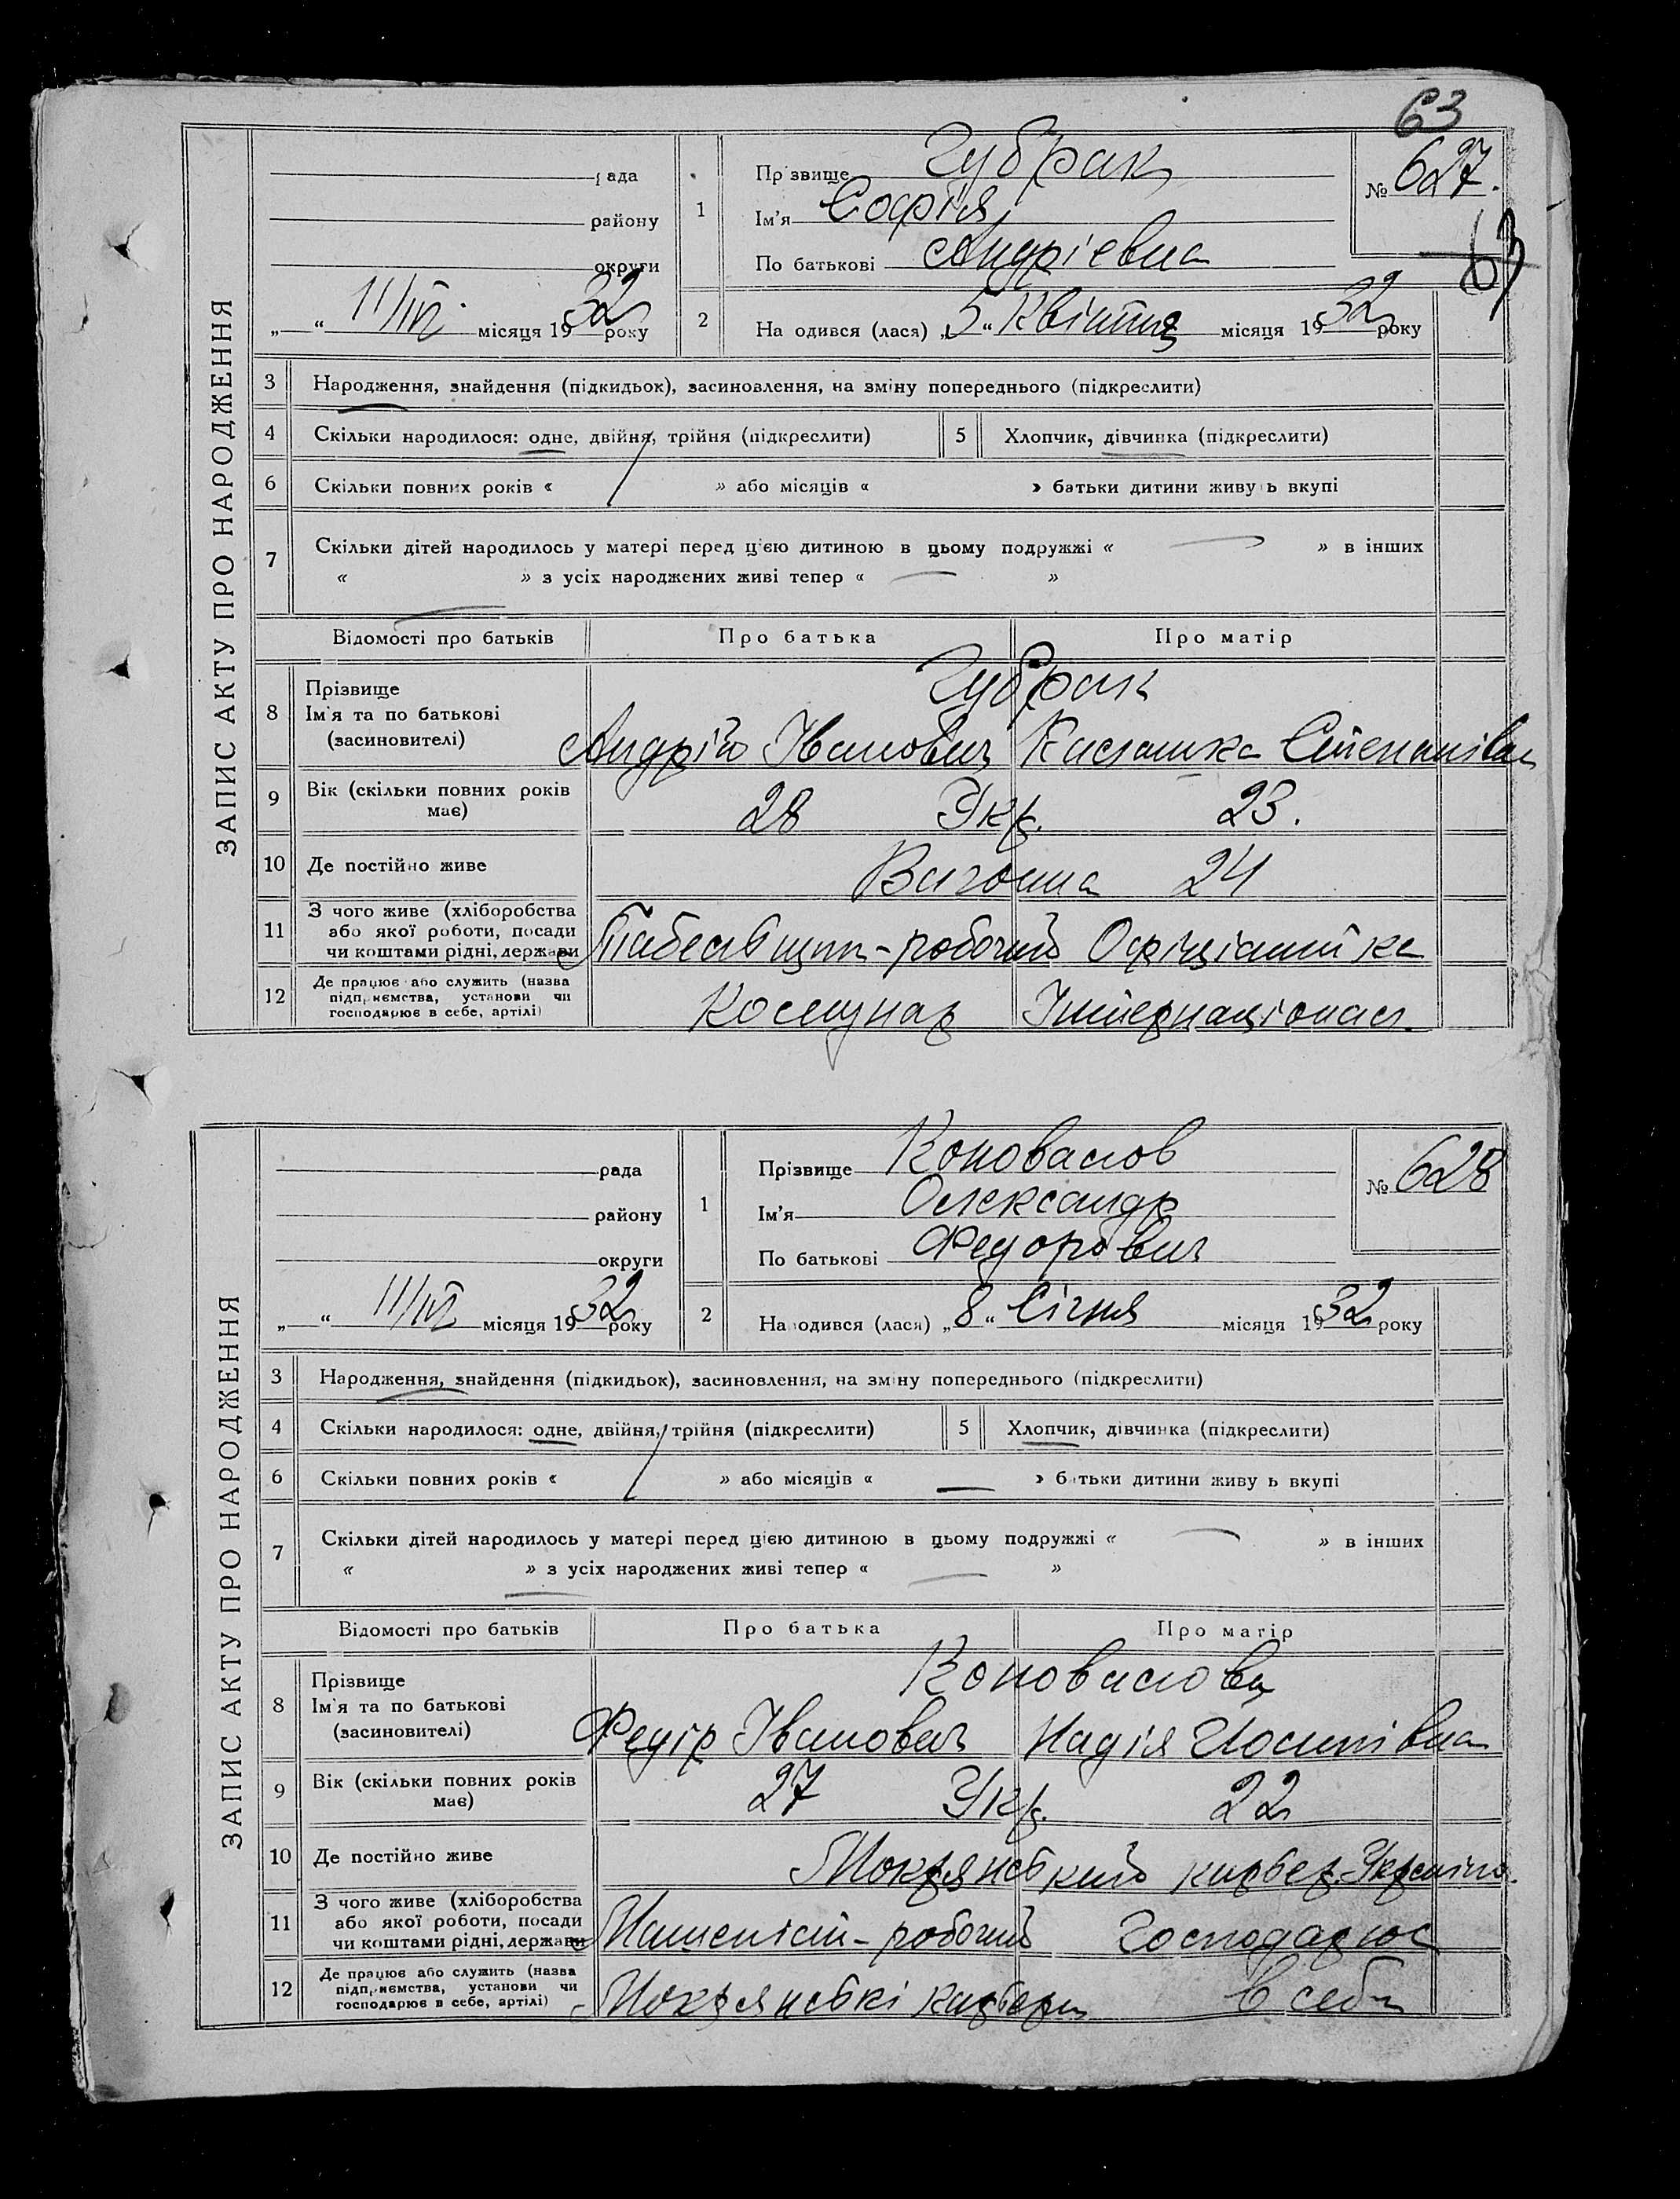 63
ЗАПИС АКТУ ПРО НАРОДЖЕННЯ
рада
району
округи
„ “ 11/IV місяця 1932 року
1 Прізвище Губрак
Ім'я Софія
По батькові Андріевна
№ 627.
63
2 Народився (лася) „5“ Квітня місяця 1932 року
3 Народження, знайдення (підкидьок), засиновлення, на зміну попереднього (підкреслити)
4 Скільки народилося: одне, двійня, трійня (підкреслити) 5 Хлопчик, дівчинка (підкреслити)
6 Скільки повних років « » або місяців « » батьки дитини живуть вкупі
7 Скільки дітей народилось у матері перед цією дитиною в цьому подружжі « — » в інших
« » з усіх народжених живі тепер « — »
Відомості про батьків Про батька Про матір
8 Прізвище Губрак
Ім'я та по батькові
(засиновителі) Андрій Іванович Степанівна
9 Вік (скільки повних років має) 28 Укр. 23.
10 Де постійно живе 24
11 З чого живе (хліборобства або якої роботи, посади чи коштами рідні, держави Табельщик-робочий Офіціантка
12 Де працює або служить (назва підприємства, установи чи господарює в себе, артілі) Комунар Інтернаціонал.
ЗАПИС АКТУ ПРО НАРОДЖЕННЯ
рада
району
округи
„ “ 11/IV місяця 1932 року
1 Прізвище Коновалов
Ім'я Олександр
По батькові Федорович
№ 628
2 Народився (лася) „8“ Січня місяця 1932 року
3 Народження, знайдення (підкидьок), засиновлення, на зміну попереднього (підкреслити)
4 Скільки народилося: одне, двійня, трійня (підкреслити) 5 Хлопчик, дівчинка (підкреслити)
6 Скільки повних років « » або місяців « — » батьки дитини живуть вкупі
7 Скільки дітей народилось у матері перед цією дитиною в цьому подружжі « — » в інших
« » з усіх народжених живі тепер « — »
Відомості про батьків Про батька Про матір
8 Прізвище Коновалови
Ім'я та по батькові
(засиновителі) Федір Іванович Надія Йосипівна
9 Вік (скільки повних років має) 27 Укр. 22
10 Де постійно живе Мокрянський карьер
11 З чого живе (хліборобства або якої роботи, посади чи коштами рідні, держави Машеніст-робочий Господарює
12 Де працює або служить (назва підприємства, установи чи господарює в себе, артілі) Мокрянські карьери в себе